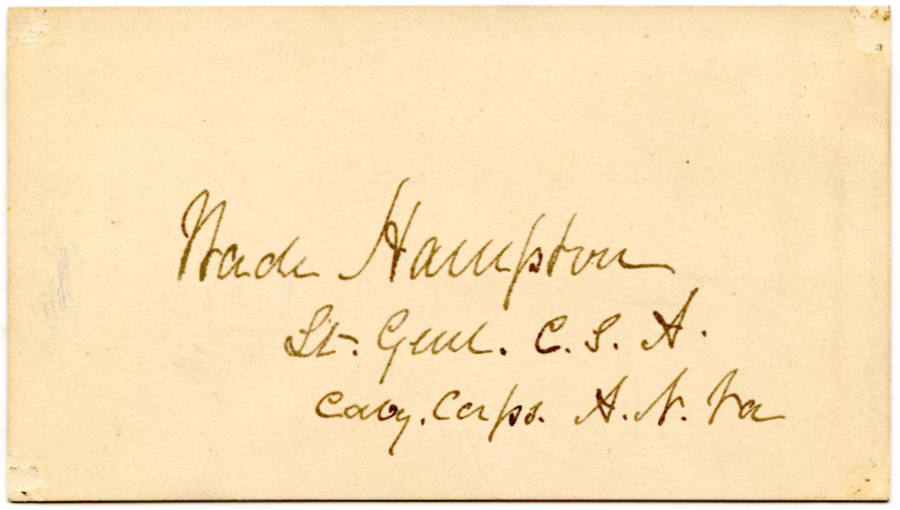 Wade Hampton
Lt. Genl. C. S. A.
Cavy. Corps. A. N. Va